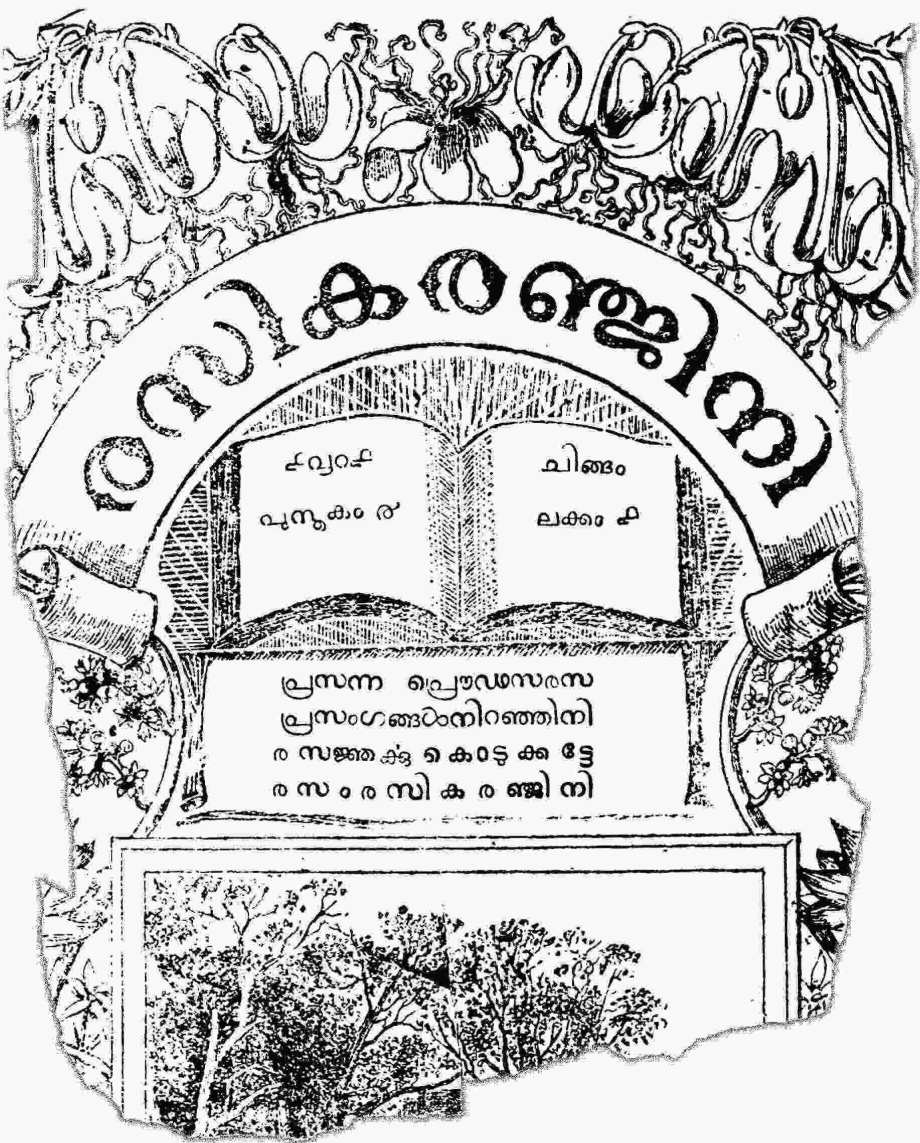 രസികരഞ്ജിനി
൧൦൮൧
പുസ്തകം ൪
ചിങ്ങം
ലക്കം ൧
പ്രസന്ന പ്രൌഢസരസ
പ്രസംഗങ്ങൾനിറഞ്ഞിനി
രസജ്ഞർക്കു കൊടുക്കട്ടേ
രസംരസികരഞ്ജിനി